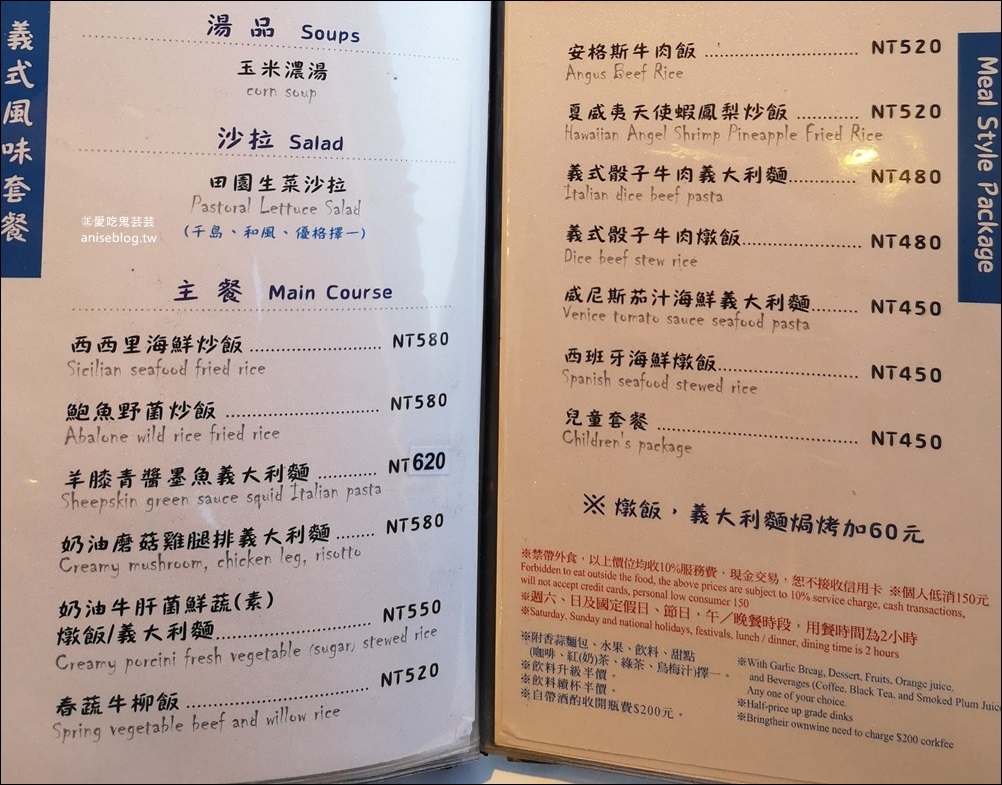 義式風味套餐
湯品 Soups
玉米濃湯
corn soup
沙拉 Salad
田園生菜沙拉
Pastoral Lettuce Salad
(千島、和風、優格擇一)
愛吃鬼芸芸
aniseblog.tw
主餐 Main Course
西西里海鮮炒飯 NT580
Sicilian seafood fried rice
鮑魚野菌炒飯 NT580
Abalone wild rice fried rice
羊膝青醬墨魚義大利麵 NT620
Sheepskin green sauce squid Italian pasta
奶油磨菇雞腿排義大利麵 NT580
Creamy mushroom, chicken leg, risotto
奶油牛肝菌鮮蔬(素)
燉飯/義大利麵 NT550
Creamy porcini fresh vegetable (sugar) stewed rice
春蔬牛柳飯 NT520
Spring vegetable beef and willow rice
Meal Style Package
安格斯牛肉飯 NT520
Angus Beef Rice
夏威夷天使蝦鳳梨炒飯 NT520
Hawaiian Angel Shrimp Pineapple Fried Rice
義式骰子牛肉義大利麵 NT480
Italian dice beef pasta
義式骰子牛肉燉飯 NT480
Dice beef stew rice
威尼斯茄汁海鮮義大利麵 NT450
Venice tomato sauce seafood pasta
西班牙海鮮燉飯 NT450
Spanish seafood stewed rice
兒童套餐 NT450
Children's package
※燉飯，義大利麵焗烤加60元
※禁帶外食，以上價位均收10%服務費，現金交易，恕不接收信用卡 ※個人低消150元
Forbidden to eat outside the food, the above prices are subject to 10% service charge, cash transactions,
will not accept credit cards, personal low consumer 150
※週六、日及國定假日、節日，午／晚餐時段，用餐時間為2小時
※Saturday, Sunday and national holidays, festivals, lunch / dinner, dining time is 2 hours
※附香蒜麵包、水果、飲料、甜點
(咖啡、紅(奶)茶、綠茶、烏梅汁)擇一。
※飲料升級半價。
※飲料續杯半價。
※自帶酒酌收開瓶費$200元。
※With Garlic Breag, Dessert, Fruits, Orange juice,
and Beverages (Coffee, Black Tea, and Smoked Plum Juice
Any one of your choice.
※Half-price up grade dinks
※Bringtheir ownwine need to charge $200 corkfee